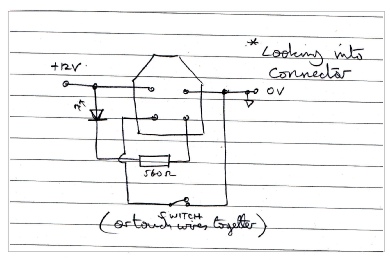 * Looking into
Connector
+12V
0V
560Ω
SWITCH
(or touch wires together)